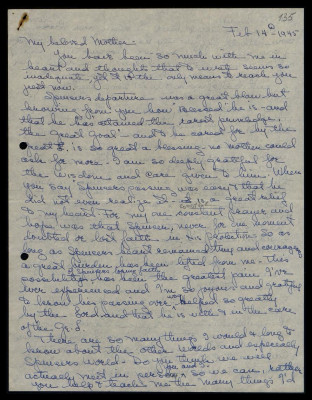 135
Feb 14th 1945
My beloved Mother:
You have been so much with me in
heart and thoughts that to write seems so
inadequate yet it is the only means to reach you
just now.
Spencer's departure was a great blow but
knowing from you how "blessed" he is - and
that he has attained the rarest privilege,
the Great Goal - and to be cared for by the
is so great a blessing no mother could
ask for more. I am so deeply grateful for
the wisdom and care given to him. When
you say Spencer's passing was easy & that he
did not even realize it - it is a great relief
to my heart. For my one constant prayer and
hope was that Spencer never for one moment
doubted or lost faith in his So as
long as Spencer's heart remained true and courageous
a great burden has been lifted from me. This
has been the greatest pain I've
ever experienced and I'm so joyous and grateful
to know his passing over was helped so greatly
by the Lord and that he is with & in the care
of the
There are so many things I would so long to
know about the other worlds and especially
Spencer's world. Do you think we will
actually meet in person, you and I so we can, rather
you help & teach me the many things I'd